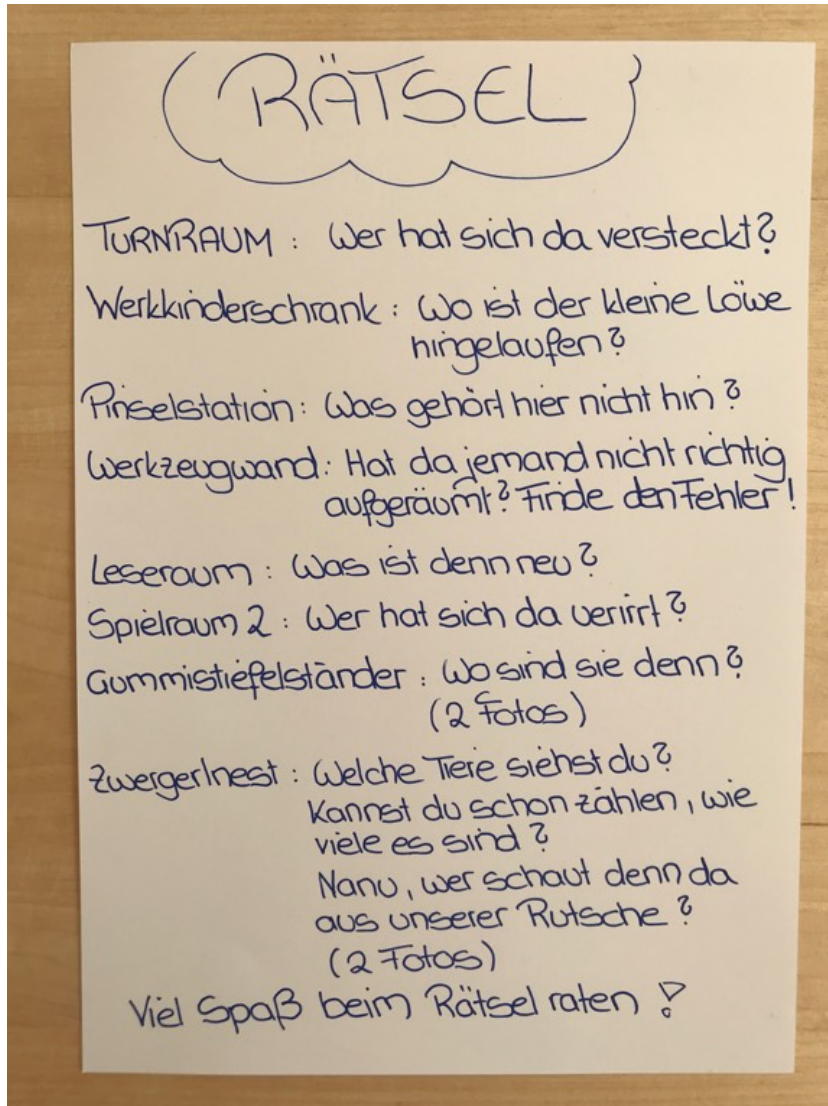 RÄTSEL
TURNRAUM : Wer hat sich da versteckt?
Werkkinderschrank : Wo ist der kleine Löwe
hingelaufen?
Pinselstation : Was gehört hier nicht hin?
Werkzeugwand : Hat da jemand nicht richtig
aufgeräumt? Finde den Fehler!
Leseraum : Was ist denn neu?
Spielraum 2 : Wer hat sich da verirrt?
Gummistiefelständer : Wo sind sie denn?
(2 Fotos)
Zwergerlnest : Welche Tiere siehst du?
Kannst du schon zählen, wie
viele es sind?
Nanu, wer schaut denn da
aus unserer Rutsche?
(2 Fotos)
Viel Spaß beim Rätsel raten!